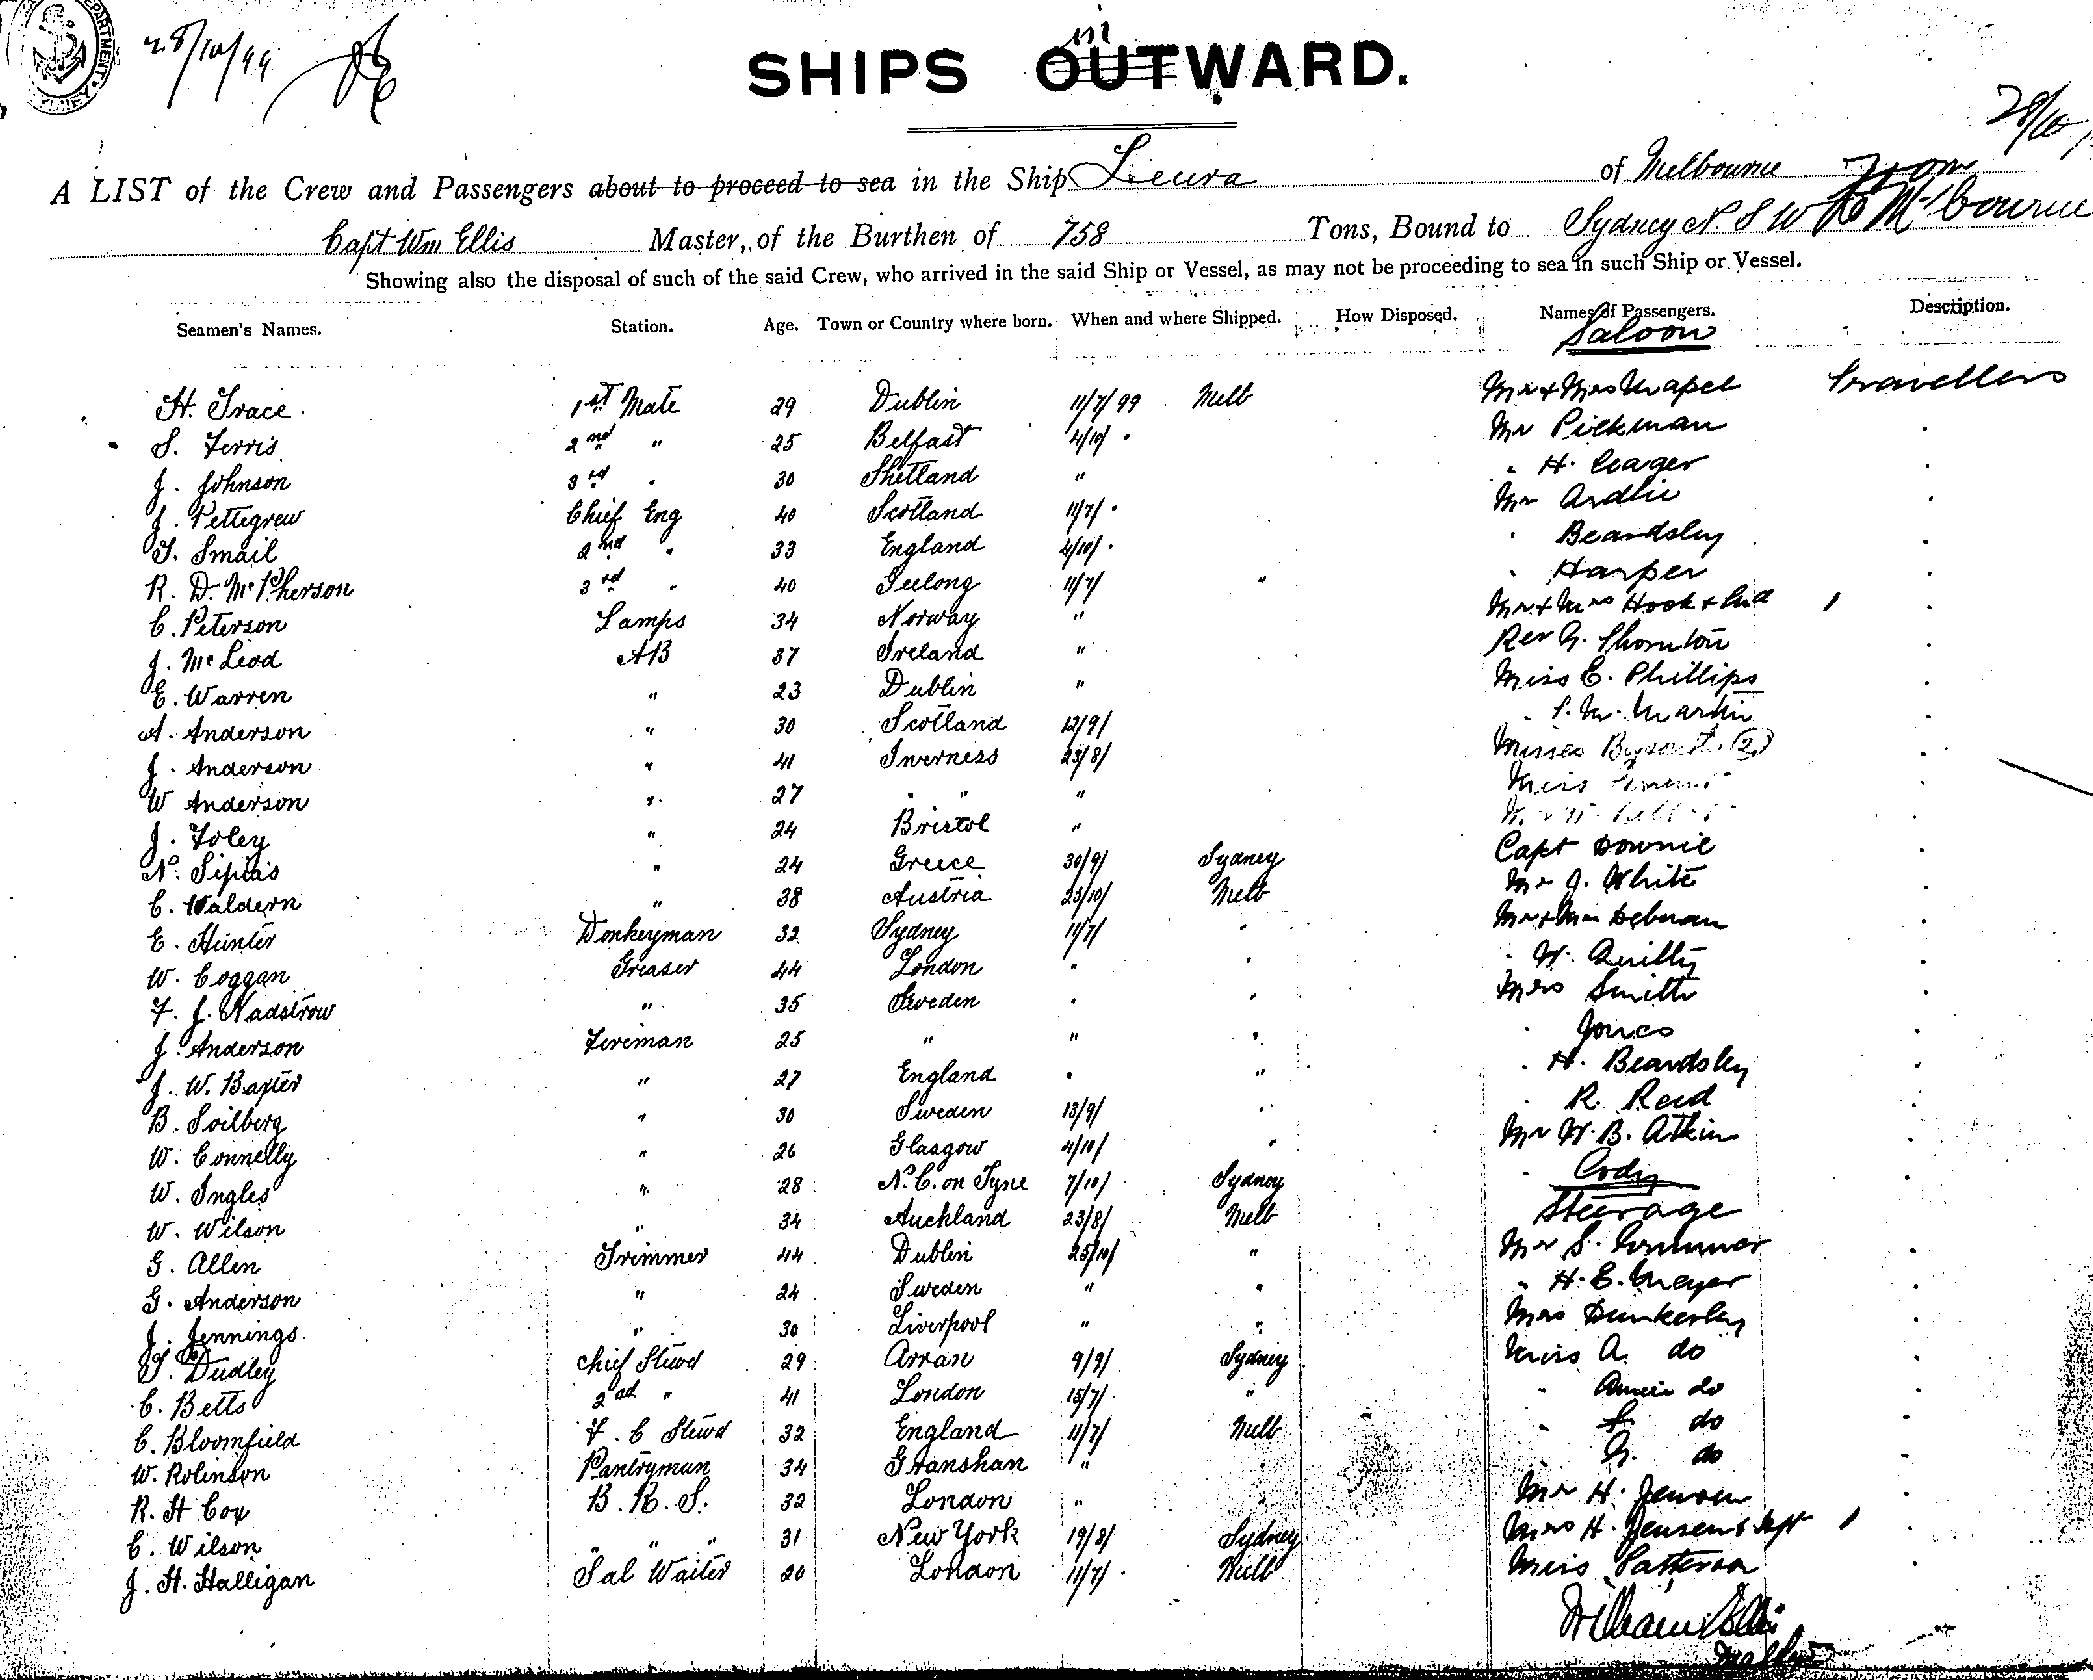 28/10/99
SHIPS OUTWARD.
in
28/10
A LIST of the Crew and Passengers about to proceed to sea in the Ship of Melbourne from
Capt Wm Ellis Master, of the Burthen of 758 Tons, Bound to Sydney N.S.W
Showing also the disposal of such of the said Crew, who arrived in the said Ship or Vessel, as may not be proceeding to sea in such Ship or Vessel.
Seamen's Names. Station. Age. Town or Country where born. When and where Shipped. How Disposed. Names of Passengers. Description.
Saloon
H. Grace 1st Mate 29 Dublin 11/7/99 Melb Mr & Mrs travellers
S. Ferris 2nd " 25 Belfast 4/10/ " Mr Pickman
J. Johnson 3rd " 30 Shetland " " H.
J. Pettegrew Chief Eng 40 Scotland 11/7/ " Mr Ardlie
T. Smail 2nd " 33 England 4/10/ " " Beardsley
R. D. McPherson 3rd " 40 Geelong 11/7/ " " Harper
C. Peterson Lamps 34 Norway " Mr & Mrs Hook &
J. McLeod AB 37 Ireland " Rev G. Thornton
E. Warren " 23 Dublin " Miss E. Phillips
A. Anderson " 30 Scotland 12/9/ " Martin
J. Anderson " 41 Inverness 23/8/ Misses (2)
W Anderson " 27 " " " Miss
J. Foley " 24 Bristol "
N. Sipias " 24 Greece 30/9/ Sydney Capt Downie
C. Waldern " 38 Austria 25/10/ Melb Mr J. White
E. Hunter Donkeyman 32 Sydney 11/7/ " Mr & Mrs
W. Coggan Greaser 44 London " " " W. Quilty
F. J. Nadstrow " 35 Sweden " " Mrs Smith
J. Anderson Fireman 25 " " " " Jones
J. W. Baxter " 27 England " " " H. Beardsley
B. Soilberg " 30 Sweden 13/9/ " " R. Reid
W. Connelly " 26 Glasgow 4/10/ " Mr W. B. Atkins
W. Ingles " 28 N.C. on Tyne 7/10/ Sydney " Cody
W. Wilson " 34 Auckland 23/8/ Melb Steerage
G. Allen Trimmer 44 Dublin 25/10/ " Mr S.
G. Anderson " 24 Sweden " " " H. E. Meyer
J. Jennings " 30 Liverpool " " Mrs Dunkerley
T. Dudley Chief Stewd 29 Arran 9/9/ Sydney Miss A. do
C. Betts 2nd " 41 London 15/7/ " " Annie do
C. Bloomfield F. C Stewd 32 England 11/7/ Melb " do
W. Rolinson Pantryman 34 " " G. do
R. H Cox B. R. S. 32 London " " Mr H. Jensen
C. Wilson " " " 31 New York 19/8/ Sydney Mrs H. Jensen &
J. H. Halligan Sal Waiter 20 London 11/7/ Melb Miss Patterson
William Ellis
Master